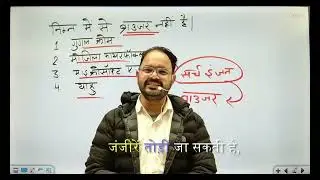 निम्न में से ब्राउजर नहीं है।
1 गुगल क्रोम
2 मोजिला फायरफॉक्स
3 माइक्रोसॉफ्ट
4 याहु
सर्च इंजन
ब्राउजर
जंजीरें तोड़ी जा सकती है,